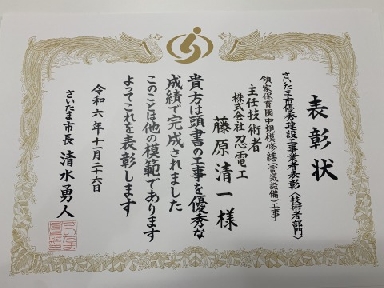 表彰状
さいたま市優秀建設工事業者表彰〈技術者部門〉
領家保育園中規模修繕(電気設備)工事
主任技術者
株式会社忍電工
藤原清一様
貴方は頭書の工事を優秀な
成績で完成されました
このことは他の模範であります
よってこれを表彰します
令和六年十一月二十六日
さいたま市長 清水勇人